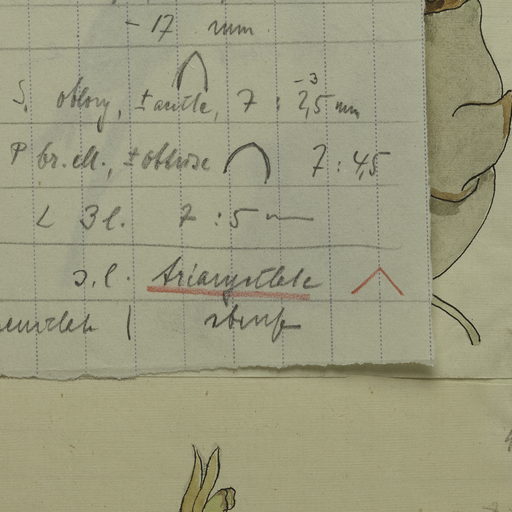 - 17 mm
S. oblong, ± acute, 7 : 2,5 mm
-3
P br. ell., ± obtuse 7 : 4,5
L 3 l. 7 : 5 m
s. l. triangulate